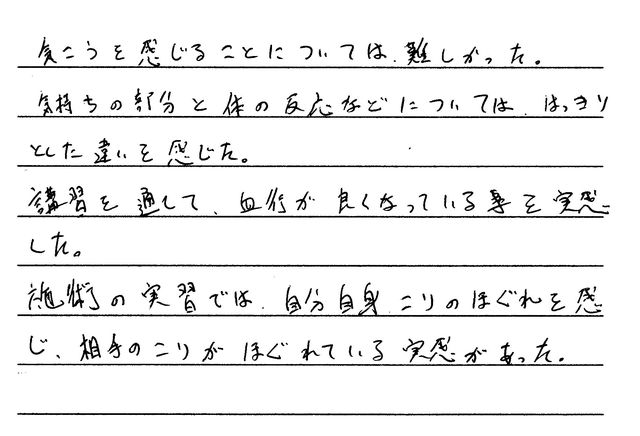 気こうを感じることについては、難しかった。
気持ちの部分と体の反応などについては、はっきり
とした違いを感じた。
講習を通して、血行が良くなっている事を実感
した。
施術の実習では、自分自身、こりのほぐれを感
じ、相手のこりがほぐれている実感があった。